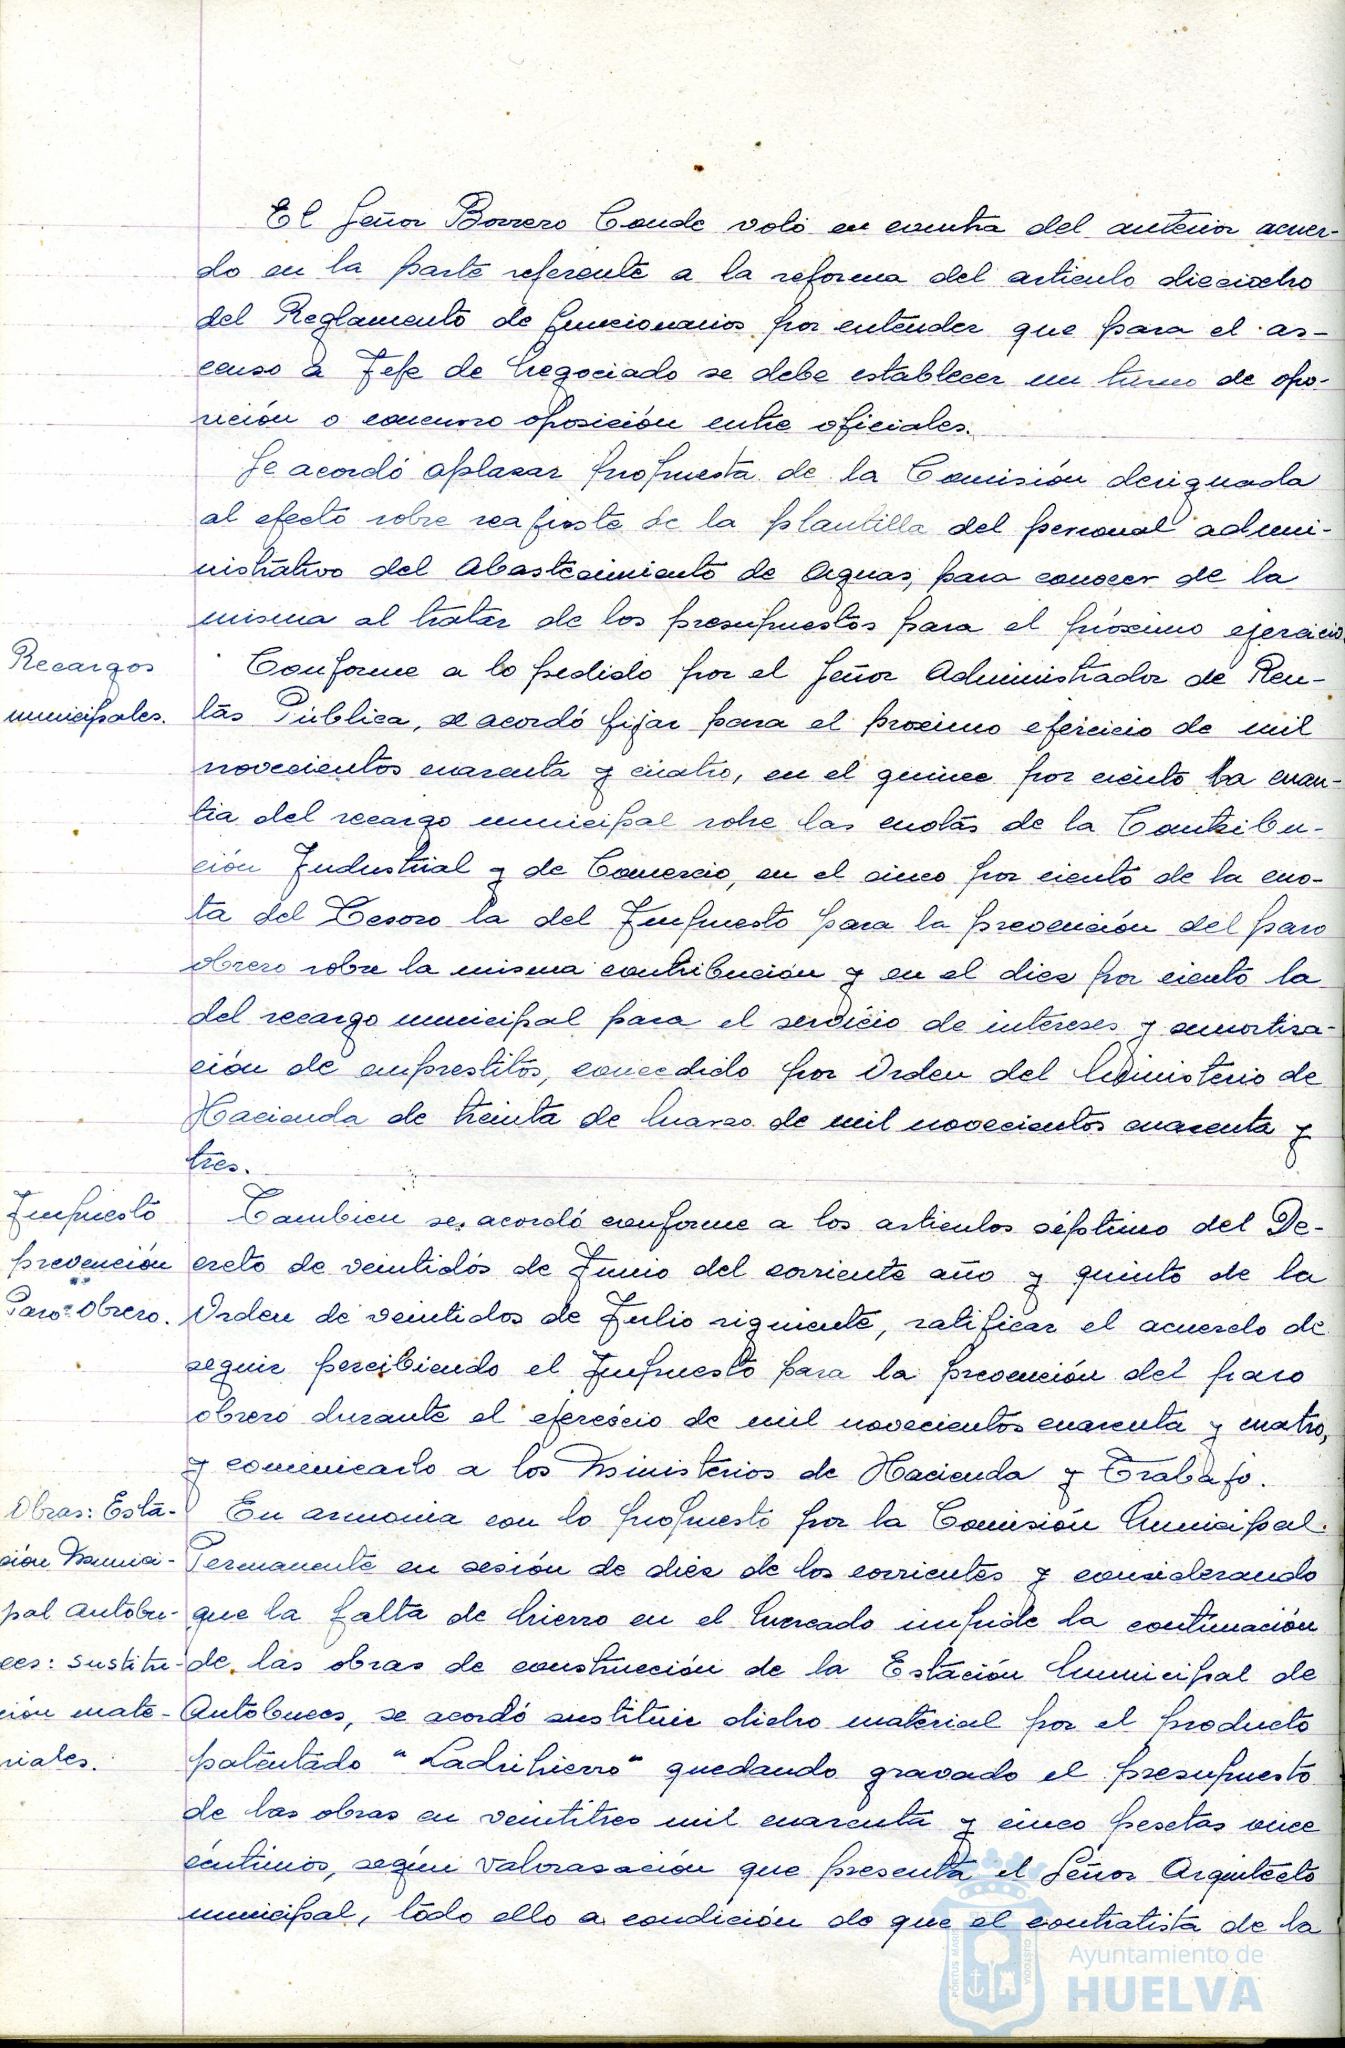 El Señor Borrero Conde votó en contra del anterior acuer-
do en la parte referente a la reforma del articulo dieciocho
del Reglamento de funcionarios por entender que para el as-
censo a Jefe de Negociado se debe establecer un turno de opo-
sición o concurso oposición entre oficiales.
Se acordó aplazar propuesta de la Comisión designada
al efecto sobre reajuste de la plantilla del personal admi-
nistrativo del Abastecimiento de Aguas, para conocer de la
misma al tratar de los presupuestos para el próximo ejercicio.
Recargos
municipales.
Conforme a lo pedido por el Señor Administrador de Ren-
tas Pública, se acordó fijar para el proximo ejercicio de mil
novecientos cuarenta y cuatro, en el quince por ciento la cuan-
tia del recargo municipal sobre las cuotas de la Contribu-
ción Industrial y de Comercio, en el cinco por ciento de la cuo-
ta del Tesoro la del Impuesto para la prevención del paro
obrero sobre la misma contribución y en el diez por ciento la
del recargo municipal para el servicio de intereses y amortiza-
ción de emprestitos, concedido por Orden del Ministerio de
Hacienda de treinta de Marzo de mil novecientos cuarenta y
tres.
Impuesto
prevención
Paro Obrero.
Tambien se acordó conforme a los articulos séptimo del De-
creto de veintidós de Junio del corriente año y quinto de la
Orden de veintidos de Julio siguiente, ratificar el acuerdo de
seguir percibiendo el Impuesto para la prevención del paro
obrero durante el ejercicio de mil novecientos cuarenta y cuatro,
y comunicarlo a los Ministerios de Hacienda y Trabajo.
Obras: Esta-
ción Munici-
pal Autobu-
ces: sustitu-
ción mate-
riales.
En armonia con lo propuesto por la Comisión Municipal
Permanente en sesión de diez de los corrientes y considerando
que la falta de hierro en el Mercado impide la continuación
de las obras de construcción de la Estación Municipal de
Autobuces, se acordó sustituir dicho material por el producto
patentado "Ladrihierro" quedando gravado el presupuesto
de las obras en veintitres mil cuarenta y cinco pesetas once
céntimos, según valorasación que presenta el Señor Arquitecto
municipal, todo ello a condición de que el contratista de la
PORTUS MARIS
CUSTODIA
Ayuntamiento de
HUELVA